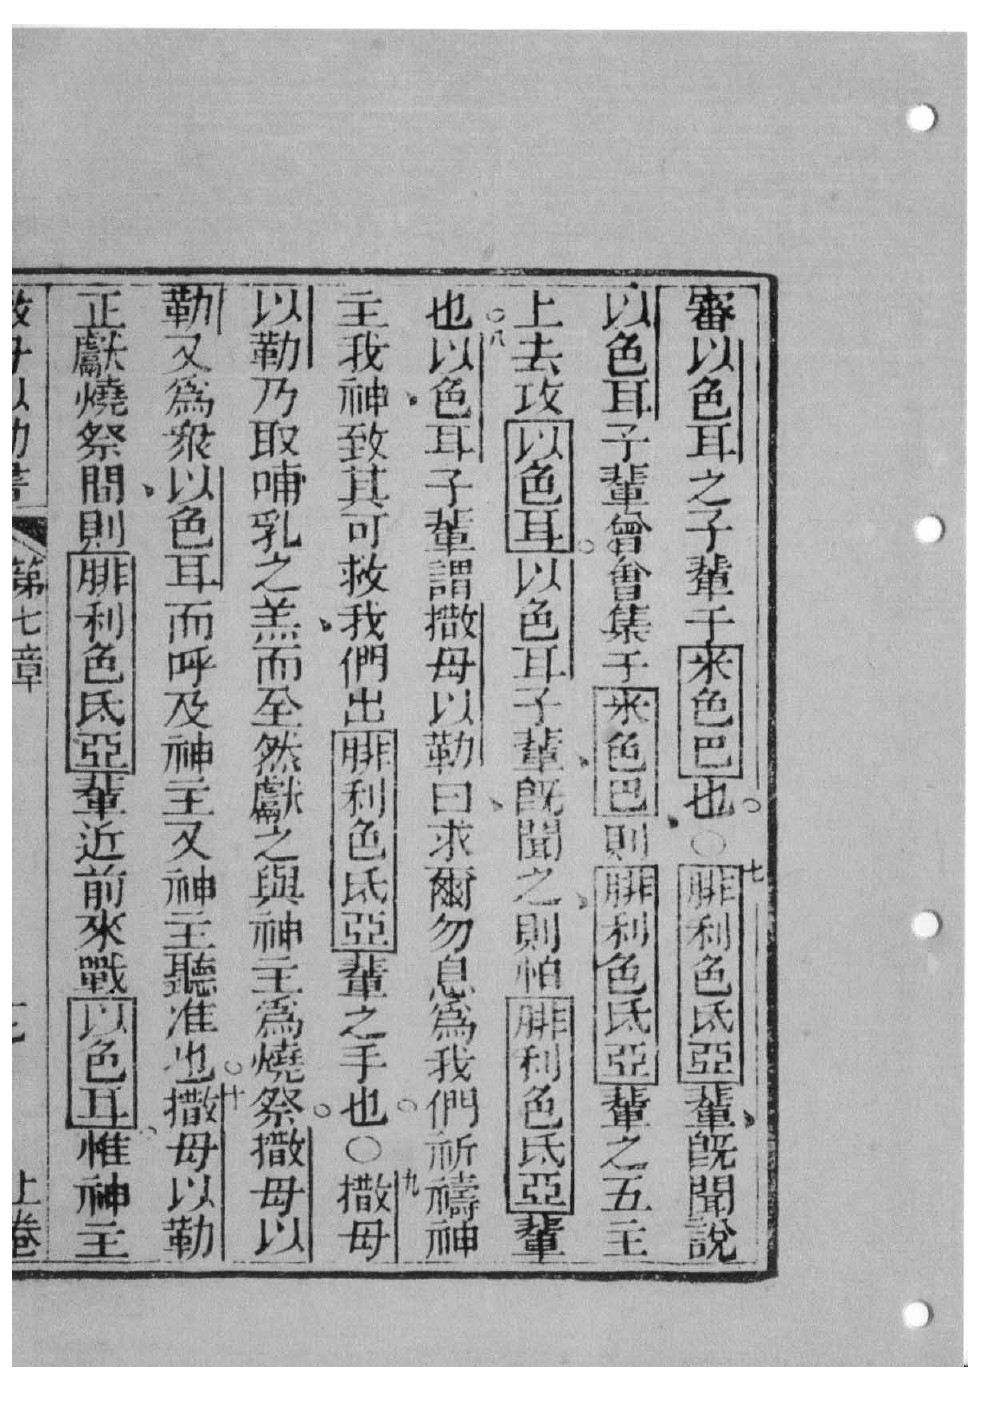 審以色耳之子輩于米色巴也。○七腓利色氐亞輩既聞說
以色耳子輩曾會集于米色巴則腓利色氐亞輩之五主
上去攻以色耳。以色耳子輩既聞之則怕腓利色氐亞輩
也。八以色耳子輩謂撒母以勒曰求爾勿息爲我們祈禱神
主我神致其可救我們出腓利色氐亞輩之手也。○九撒母
以勒乃取哺乳之羔而至然獻之與神主爲燒祭。撒母以
勒又爲衆以色耳而呼及神主又神主聽准也。十撒母以勒
正獻燒祭間則腓利色氐亞輩近前來戰以色耳。惟神主
撒母以勒書 第七章 上卷